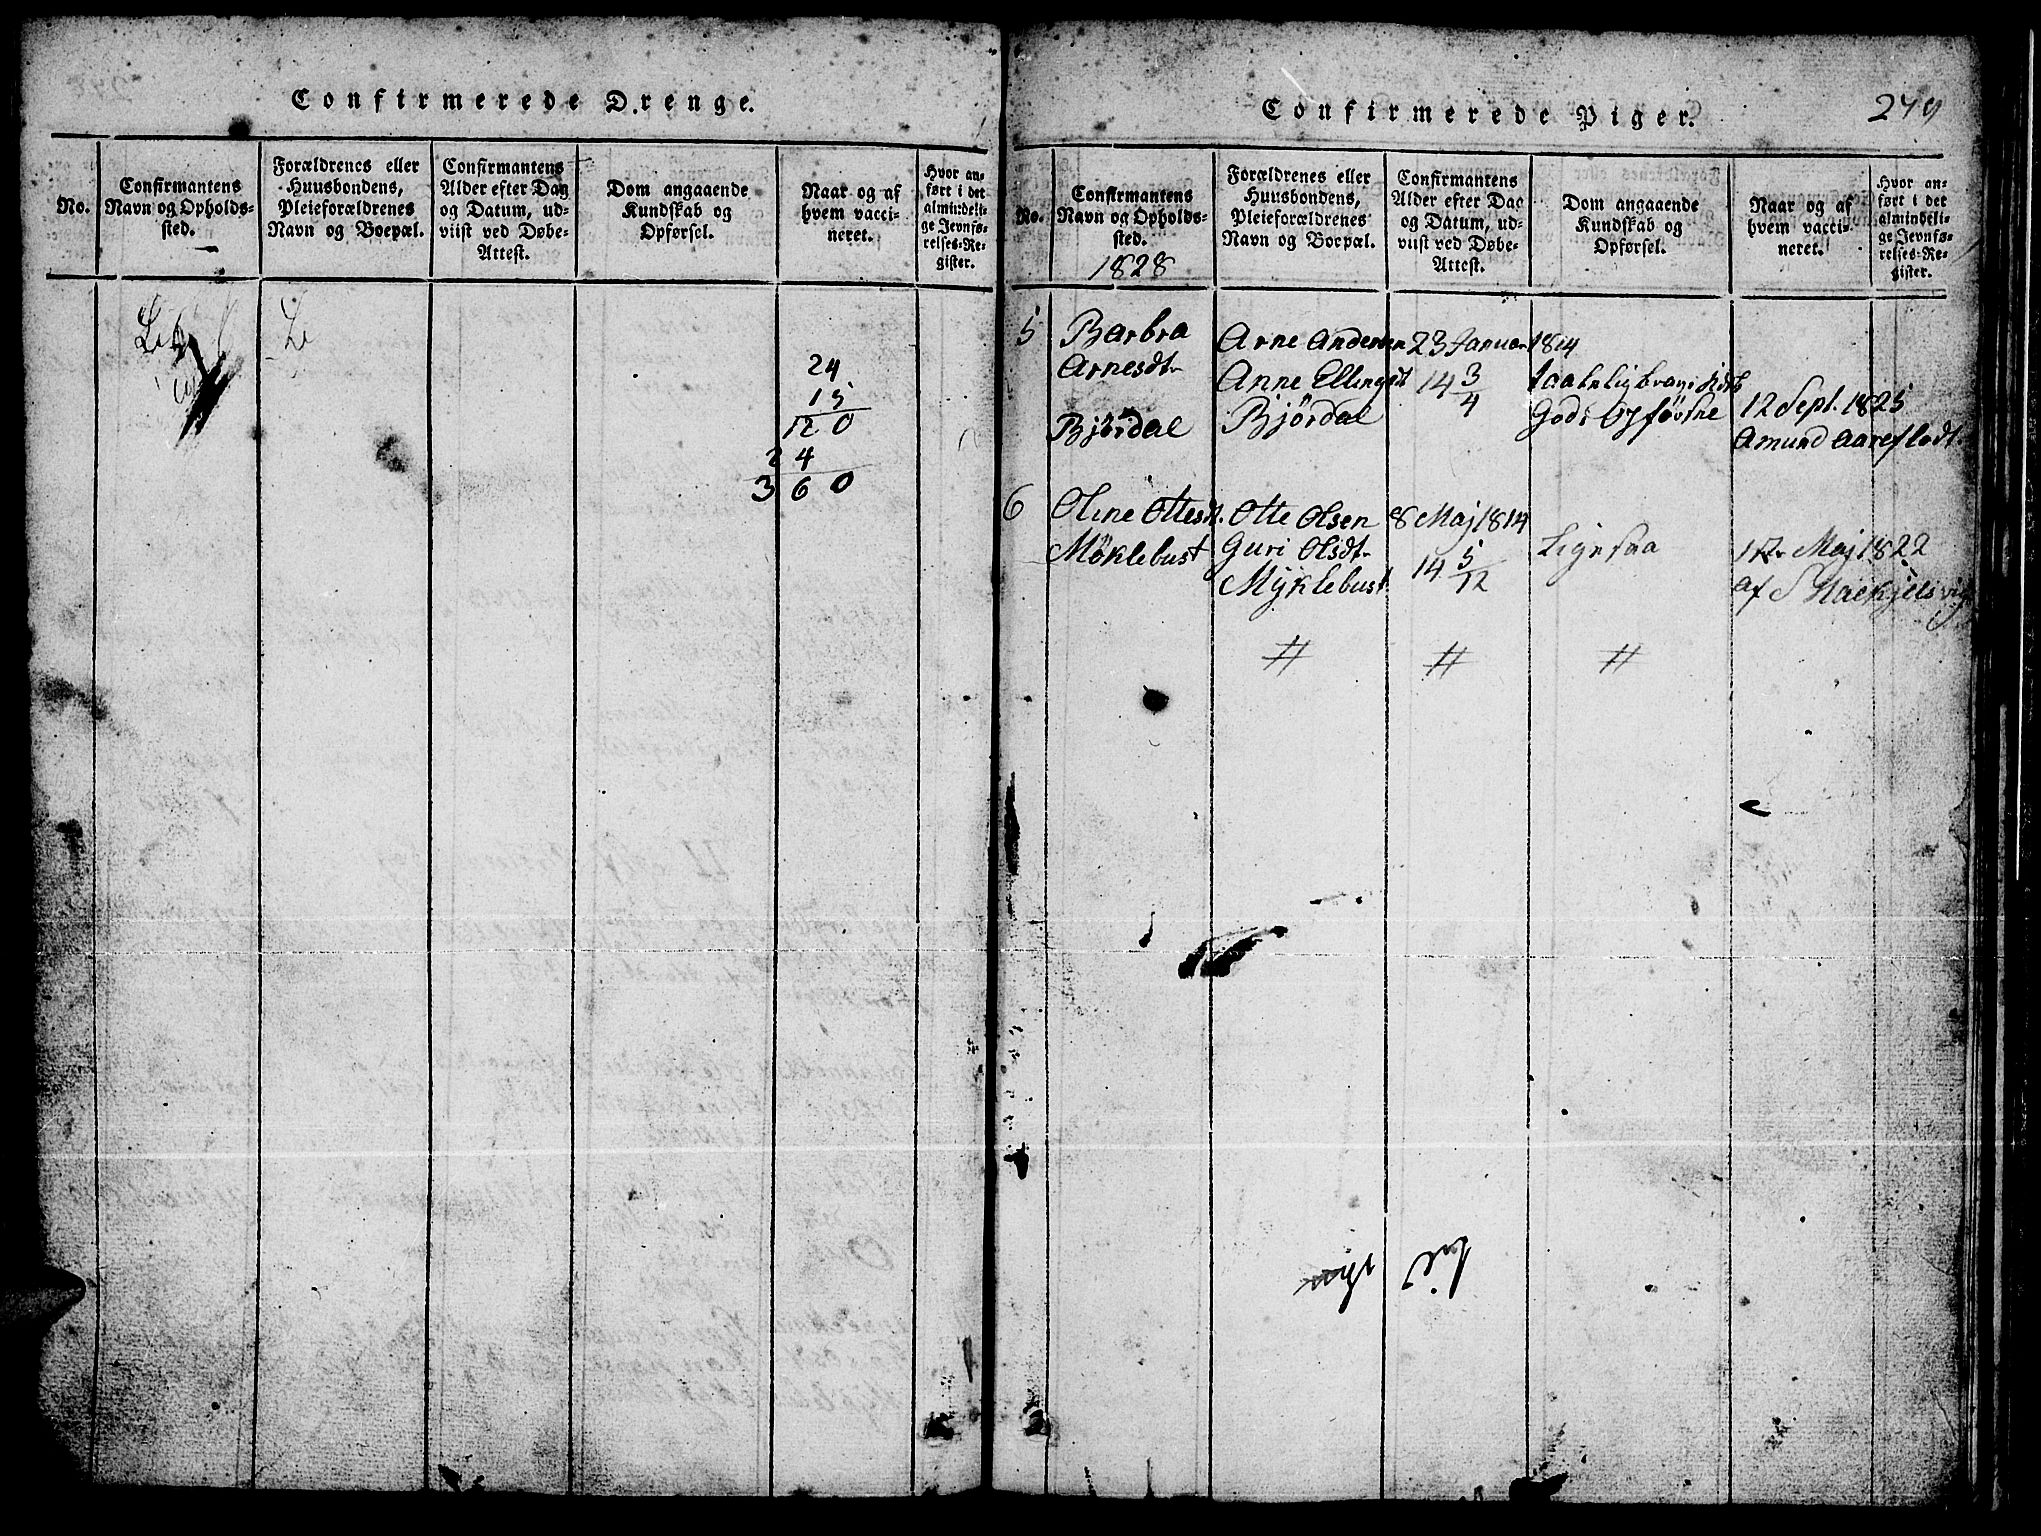 Confirmerede Drenge.
No.
Confirmantens
Navn og Opholds-
sted.
Forældrenes eller
Huusbondens,
Pleieforældrenes
Navn og Boepæl.
Confirmantens
Alder efter Dag
og Datum, ud-
viist ved Døbe-
Attest.
Dom angaaende
Kundskab og
Opførsel.
Naar og af
hvem vacci-
neret.
Hvor an-
ført i det
almindeli-
ge Jevnfø-
relses-Re-
gister.
24
15
120
24
360
Confirmerede Piger.
249
No.
Confirmantens
Navn og Opholds-
sted.
1828
Forældrenes eller
Huusbondens,
Pleieforældrenes
Navn og Boepæl.
Confirmantens
Alder efter Dag
og Datum, ud-
viist ved Døbe-
Attest.
Dom angaaende
Kundskab og
Opførsel.
Naar og af
hvem vacci-
neret.
Hvor an-
ført i det
almindeli-
ge Jevnfø-
relses-Re-
gister.
5
Barbra
Arnesdt.
Bjørdal
Arne Andersen
Anne Ellingsdt
Bjørdal
23 Januar 1814
14 3/4
God
12 Sept. 1825
Amund Aareflodt.
6
Oline Ottesdt.
Møklebust
Otte Olsen
Guri Olsdt.
Myklebust
8 Maj 1814
14 5/12
Ligesaa
Maj 1822
af
# # #